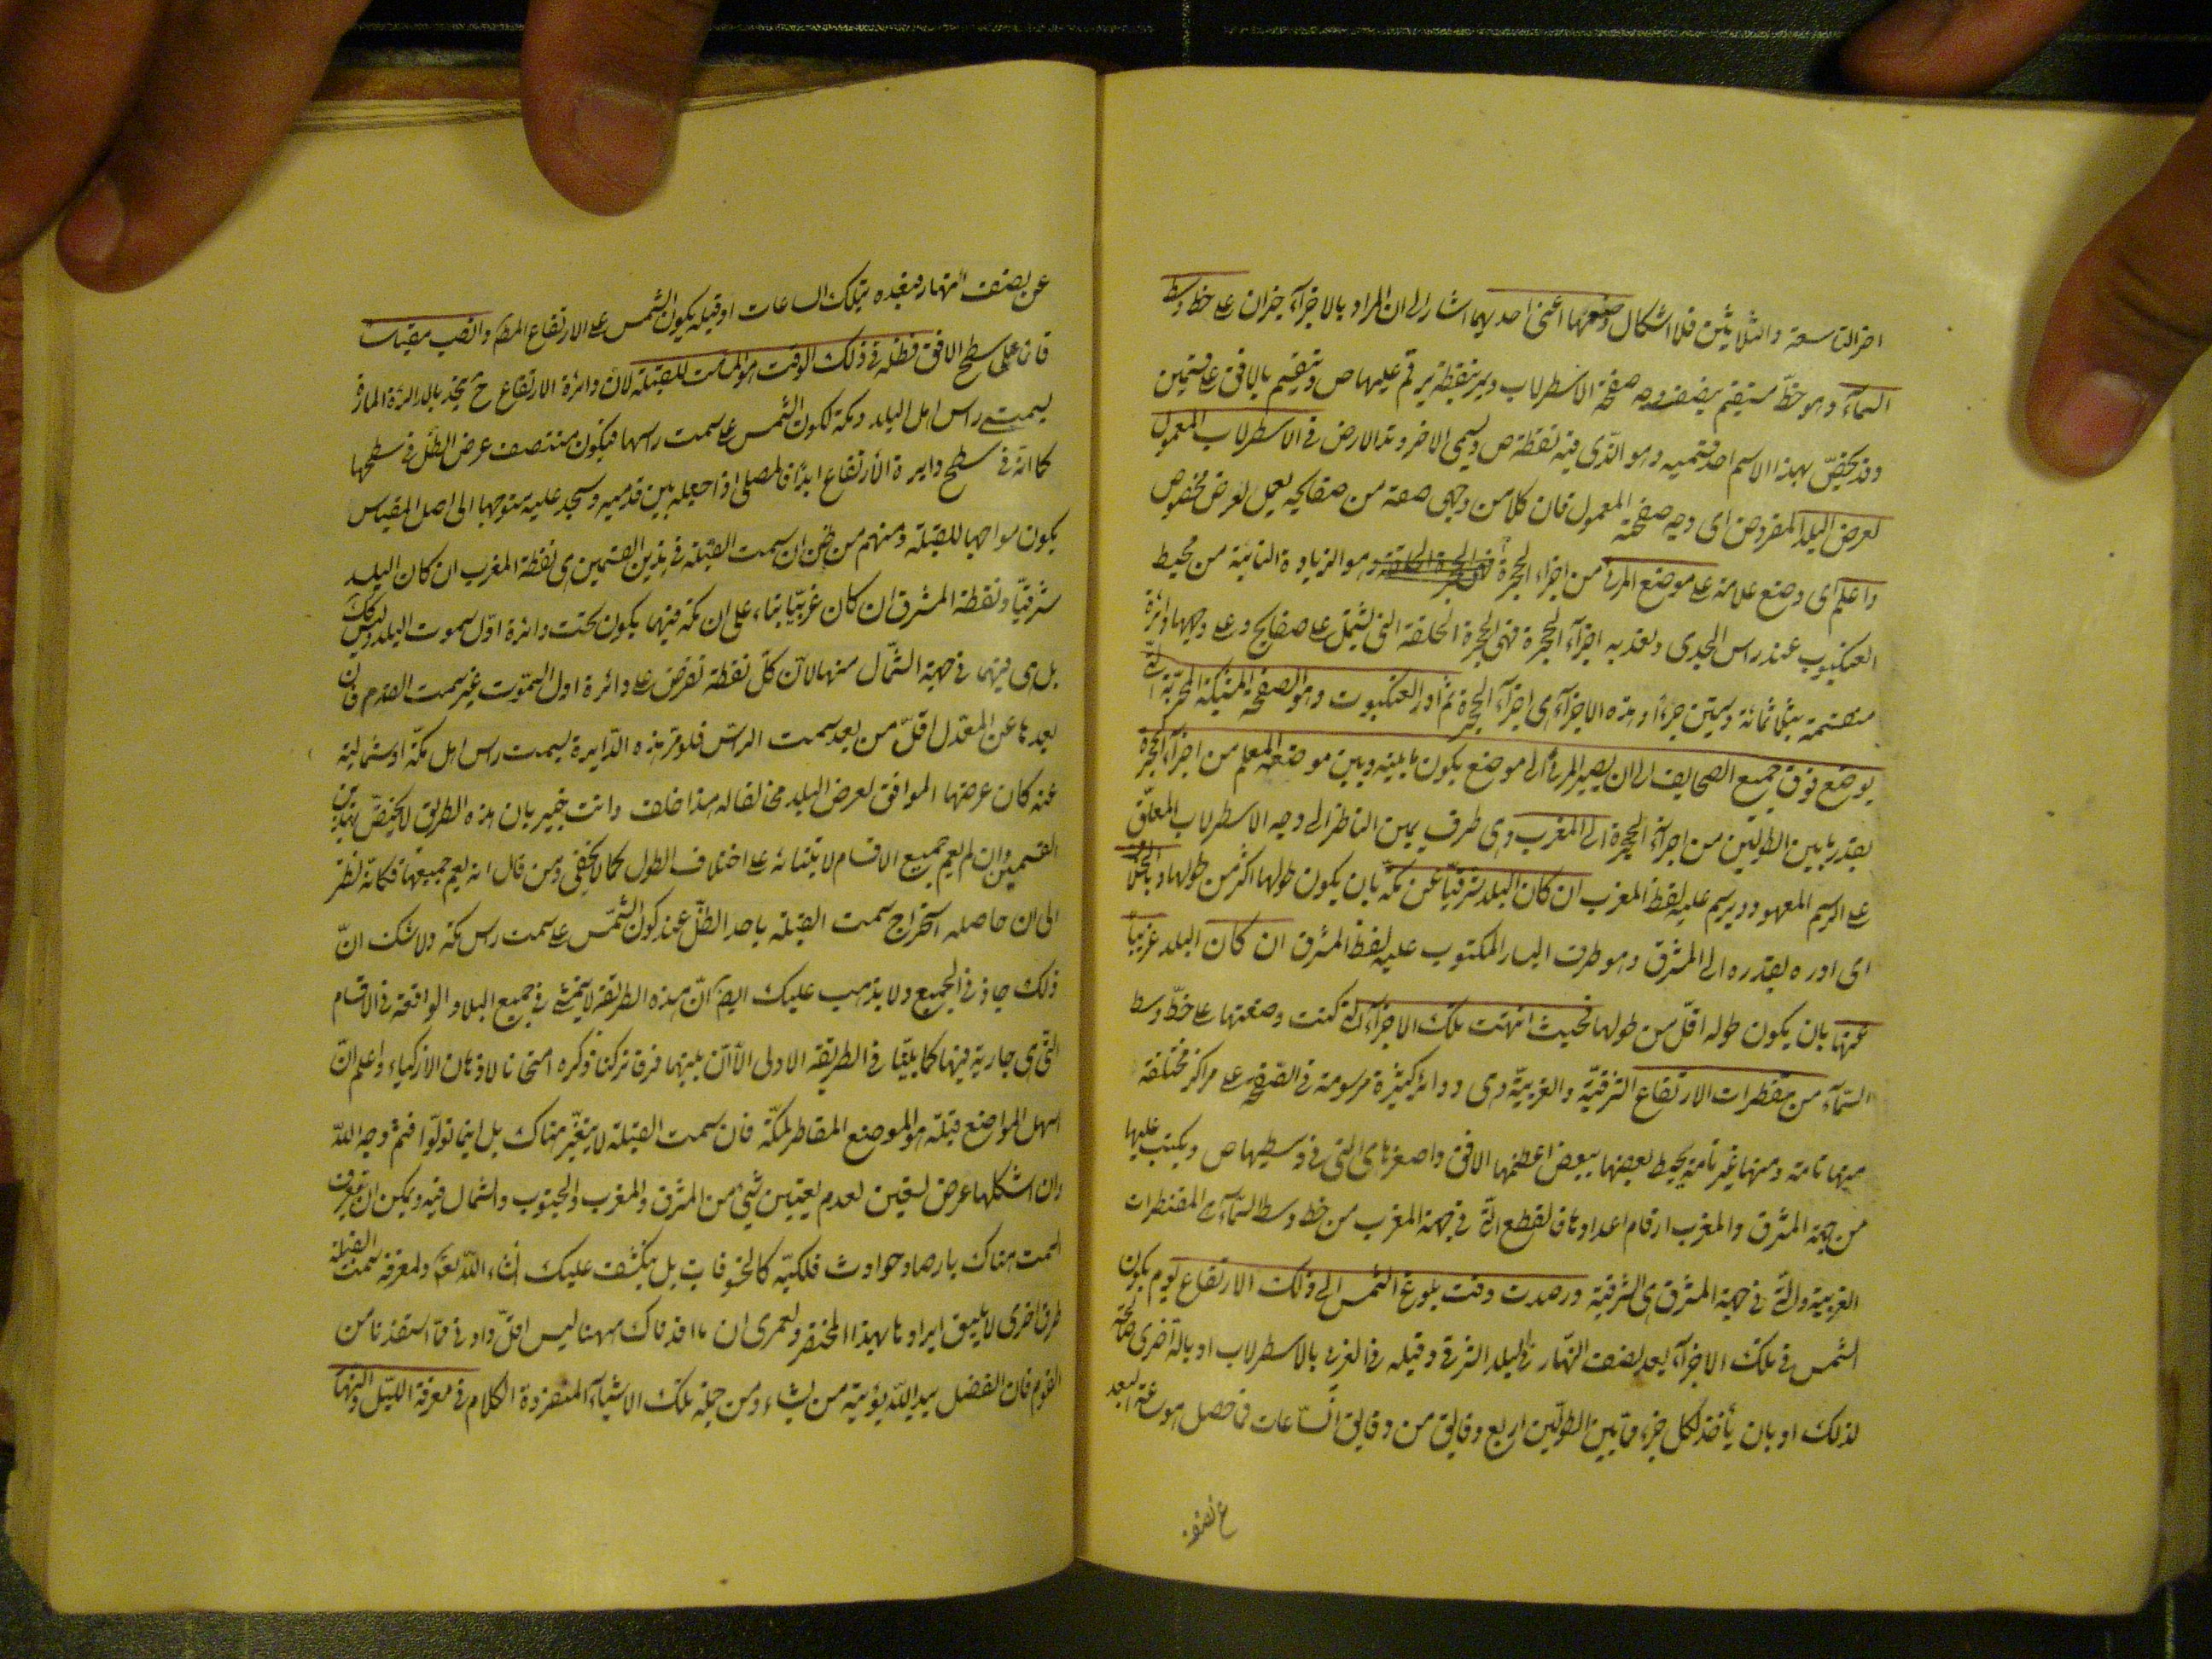 اخر التاسعة والثلاثين فلا اشكال وضعها اعنى احديهما اشار الى ان المراد بالاجزآء جزان على خط وسط
السمآء وهو خطّ مستقيم ينصف وجه صفحة الاسطرلاب ويمر بنقطة يرقم عليها ص وينقسم بالافق على قسمين
وقد يخصّ بهذا الاسم احد قسميه وهو الذى فيه نقطة ص ويسمى الاخر وتد الارض فى الاسطرلاب المعمول
لعرض البلد المفروض اى وجه صفحته المعمول فان كلا من وجهى صفحة من صفايحه يعمل لعرض مخصوص
واعلم اى وضع علامة على موضع المرئ من اجزاء الحجرة وهو الزيادة الناتئة من محيط
العنكبوت عند راس الجدى ولعد به اجزآء الحجرة فهى الحجرة الحلقة التى تشتمل على صفايح وعلى وجهها دائرة
منقسمة بثلثمائة وستين جزءا وهذه الاجزآء هى اجزآء الحجرة ثم أدر العنكبوت وهو الصفحة المشبكة التى
يوضع فوق جميع الصحايف الى ان يصير المرئ الى موضع يكون ما بينه وبين موضعه المعلم من اجزآء الحجرة
بقدر ما بين الطولين من اجزآء الحجرة الى المغرب وهى طرف يمين الناظر الى وجه الاسطرلاب المعلّق
على الرسم المعهود ويرسم عليه لفظ المغرب ان كان البلد شرقيّا عن مكّة بان يكون طولها اكثر من طولها وبالخلاف
اى ادره بقدره الى المشرق وهو طرف اليسار المكتوب عليه لفظ المشرق ان كان البلد غربيّا
عنها بان يكون طوله اقلّ من طولها فحيث انتهت تلك الاجزآء التى كنت وضعتها على خطّ وسط
السّمآء من مقنطرات الارتفاع الشرقيّة والغربيّة وهى دوائر كثيرة مرسومة فى الصّفحة على مراكز مختلفة
منها تامة ومنها غير تامة يحيط بعضها ببعض اعظمها الافق واصغرها هى التى فى وسطيها ص ويكتب عليها
من جهة المشرق والمغرب ارقام اعدادها فالقطع التى فى جهة المغرب من خط وسط السّمآء هى المقنطرات
الغربية والتى فى جهة المشرق هى الشرقية ورصدت وقت بلوغ الشمس الى ذلك الارتفاع يوم يكون
الشمس فى تلك الاجزآء بعد نصف النّهار فى البلد الشرقى وقبله فى الغربى بالاسطرلاب او بالة اخرى صالحة
لذلك او بان يأخذ لكل جزء مما بين الطولين اربع دقايق من دقايق السّاعات فما حصل هو ساعة البعد
عن نصف
عن نصف النهار فبعده بتلك الساعات او قبله يكون الشّمس على الارتفاع المط وانصب مقياسا
قائما على سطح الافق فظله فى ذلك الوقت هو المسامت للقبلة لان دائرة الارتفاع ح يتحد بالدائرة المارة
بسمتى راس اهل البلد ومكة لكون الشمس على سمت راسها فيكون منتصف عرض الظل فى سطحها
كما انّه فى سطح دايرة الارتفاع ابدًا فالمصلى اذا جعله بين قدميه وسجد عليه متوجها الى اصل المقياس
يكون مواجها للقبلة ومنهم من ظن ان سمت القبلة فى هذين القسمين هى نقطة المغرب ان كان البلد
شرقيّا ونقطة المشرق ان كان غربيّا بناء على ان مكة فيهما يكون تحت دائرة اوّل سموت البلد وليس كك
بل هى فيهما فى جهة الشمال منها لانّ كلّ نقطة تفرض على دائرة اول السموت غير سمت القدم فان
بعدها عن المعدل اقلّ من بعد سمت الراس فلو مر هذه الدّايرة بسمت راس اهل مكّة او شمالية
عنه كان عرضها الموافق لعرض البلد مخالفا له هذا خلف وانت خبير بان هذه الطريق لا يختصّ بهذين
القسمين وان لم يعم جميع الاقسام لابتنائه على اختلاف الطول كما لا يخفى ومن قال انه يعم جميعها فكانّه نظر
الى ان حاصله استخراج سمت القبلة باحد الظلّ عند كون الشمس على سمت راس مكة ولا شك انّ
ذلك جار فى الجميع ولا يذهب عليك ايضا انّ هذه الطريقة لا يتمشى فى جميع البلاد الواقعة فى الاقسام
التى هى جارية فيها كما بيّنا فى الطريقة الاولى الّا انّ بينهما فرقا تركنا ذكره امتحانا لاذهان الاذكياء واعلم انّ
اسهل المواضع قبلة هو الموضع المقاطر لمكّة فان سمت القبلة لا يتغيّر هناك بل اينما تولّوا فثمّ وجه اللّه
وان اشكلها عرض تسعين لعدم تعيين شئ من المشرق والمغرب والجنوب والشمال فيه ويمكن ان يعرف
السمت هناك بارصاد حوادث فلكيّة كالخسوفات بل ينكشف عليك انشاء اللّه تع ولمعرفة سمت القبلة
طرق اخرى لا يليق ايرادها بهذا المختصر ولعمرى ان ما افدناك ههنا ليس اقلّ وادنى مما استفدنا من
القوم فان الفضل بيد اللّه يؤتيه من يشاء ومن جملة تلك الاشيآء المنفردة الكلام فى معرفة الليّل والنّهار